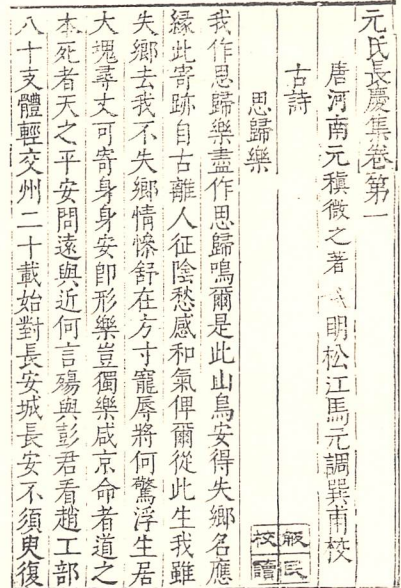 元氏長慶集卷第一
唐河南元稹微之著 明松江馬元調巽甫校
古詩
思歸樂
校讀
我作思歸樂盡作思歸鳴爾是此山鳥安得失鄉名應
緣此寄跡自古離人征陰愁感和氣俾爾從此生我雖
失鄉去我不失鄉情慘舒在方寸寵辱將何驚浮生居
大塊尋丈可寄身身安卽形樂豈獨樂咸京命者道之
本死者天之平安問遠與近何言殤與彭君看趙工部
八十支體輕交州二十載始對長安城長安不須臾復